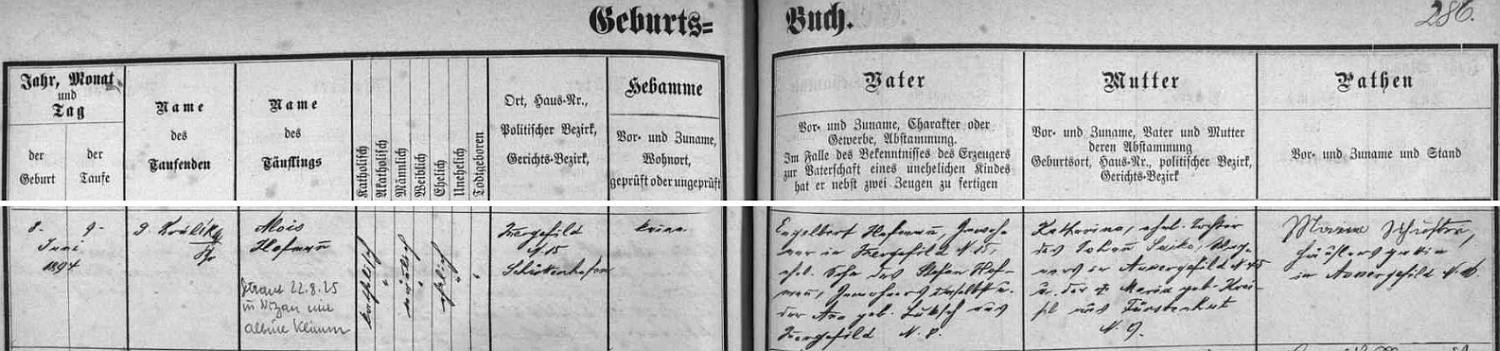 Geburts=
Buch.
286.
Jahr, Monat
und
Tag
der
Geburt
der
Taufe
Name
des
Taufenden
Name
des
Täuflings
Katholisch
Akatholisch
Männlich
Weiblich
Ehelich
Unehelich
Todtgeboren
Ort, Haus-Nr.,
Politischer Bezirk,
Gerichts-Bezirk,
Hebamme
Vor- und Zuname,
Wohnort,
geprüft oder ungeprüft
Vater
Vor- und Zuname, Charakter oder
Gewerbe, Abstammung.
Im Falle des Bekenntnisses des Erzeugers
zur Vaterschaft eines unehelichen Kindes
hat er nebst zwei Zeugen zu fertigen
Mutter
Vor- und Zuname, Vater und Mutter
deren Abstammung
Geburtsort, Haus-Nr., politischer Bezirk,
Gerichts-Bezirk
Pathen
Vor- und Zuname und Stand
8.
9.
Juni
1894
Králík
Alois
Hofmann
Getraut 22.8.25
in
mit
Albine Klimm
katholisch
männlich
ehelich
N. 15
Schüttenhofen
keine
Engelbert Hofmann,
in N. 15
ehl. Sohn des Stefan Hof-
mann,
der geb.
N. 8.
Katharina, ehel. Tochter
des Johann
in Außergefild N.
u. der Maria geb. Krei-
pl aus Fürstenhut
N. 9.
Maria Schuster,
Häuslersgattin
in Außergefild N.